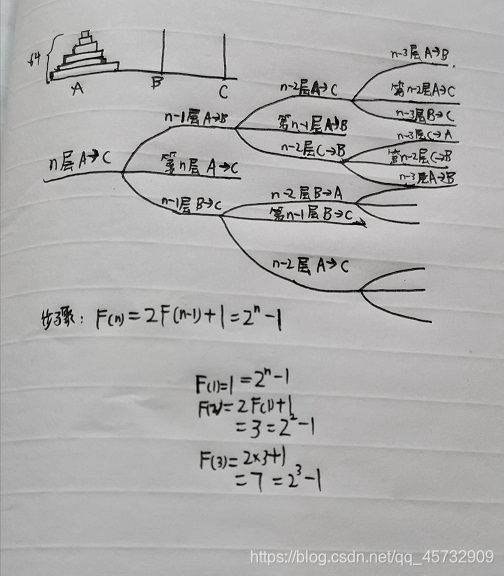 64
A B C
n层A→C
n-1层A→B
第n层A→C
n-1层B→C
n-2层A→C
第n-1层A→B
n-2层C→B
n-2层B→A
第n-1层B→C
n-2层A→C
n-3层A→B
第n-2层A→C
n-3层B→C
n-3层C→A
第n-2层C→B
n-3层A→B
步骤: F(n)=2F(n-1)+1=2^n-1
F(1)=1=2^n-1
F(2)=2F(1)+1
=3=2^2-1
F(3)=2×3+1
=7=2^3-1
https://blog.csdn.net/qq_45732909